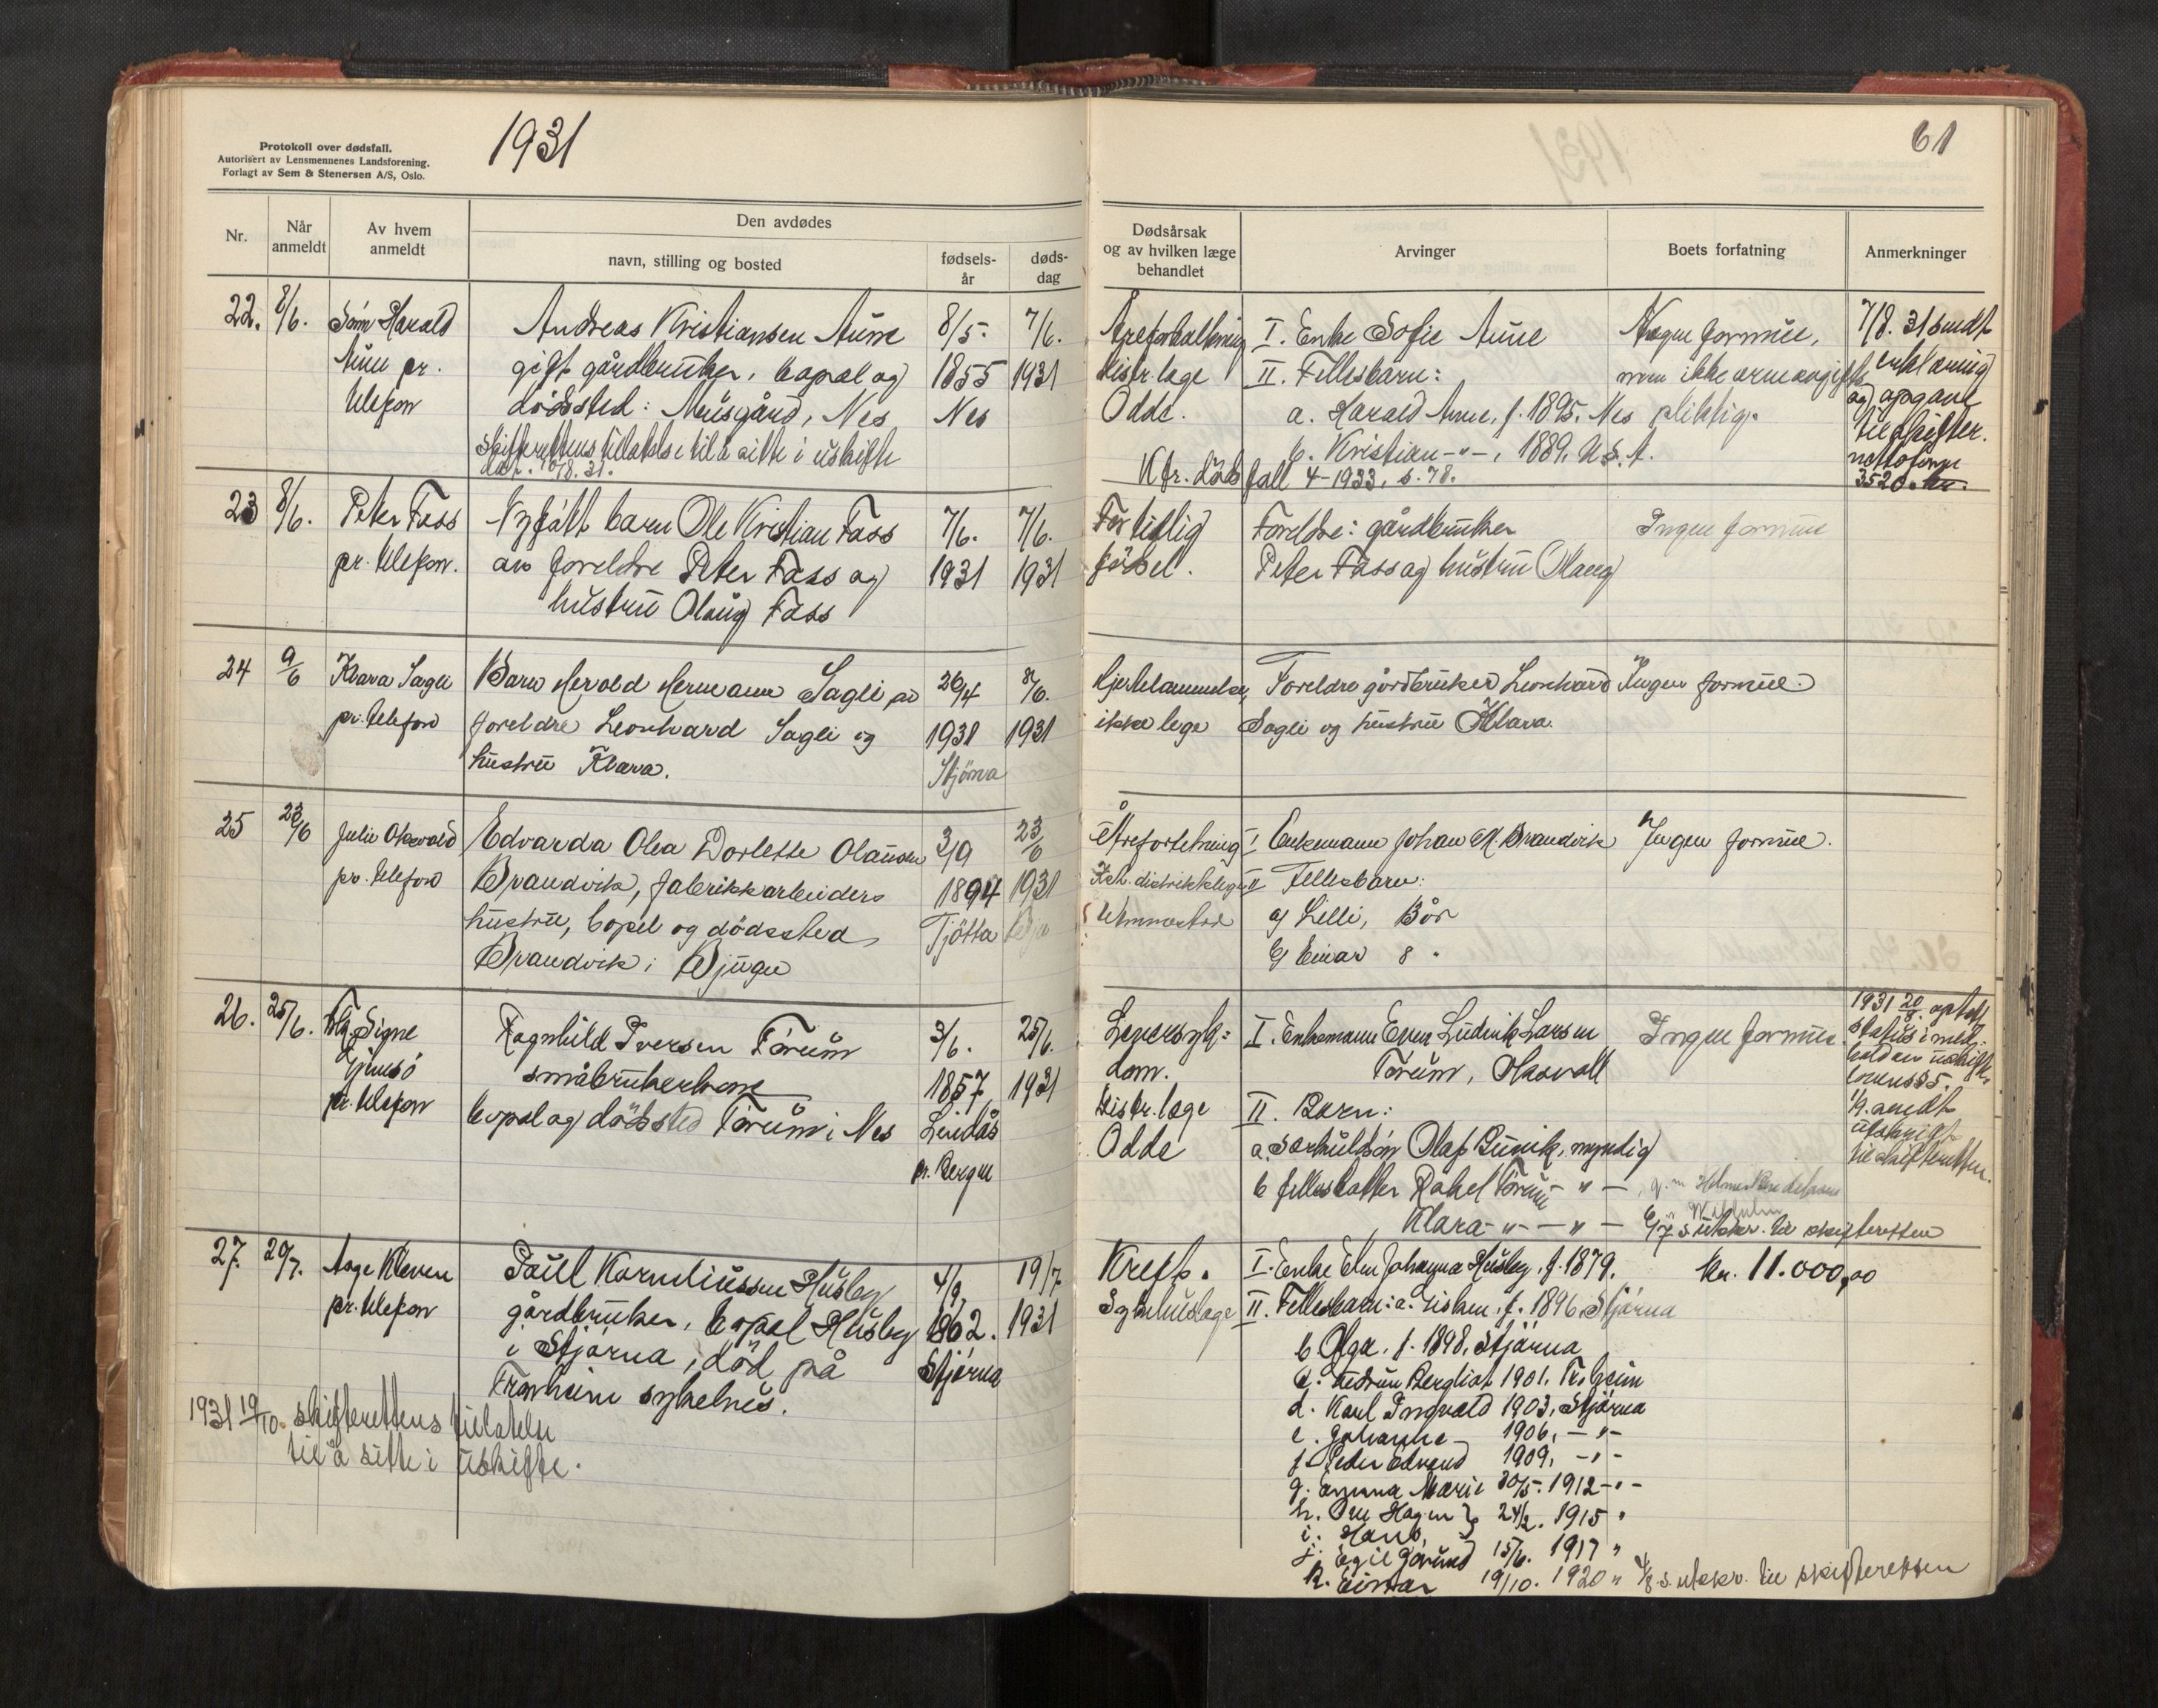 Protokoll over dødsfall.
Autorisert av Lensmennenes Landsforening.
Forlagt av Sem & Stenersen A/S, Oslo.
1931
Nr.
Når
anmeldt
Av hvem
anmeldt
Den avdødes
navn, stilling og bosted
fødsels-
år
døds-
dag
22.
8/6.
Sönn Harald
Aune pr.
telefon
Andreas Kristiansen Aune
gift gårdbruker, bopel og
dödssted: Mausgård, Nes
Skifterettens tillatelse til å sitte i uskifte
dat. 10/8. 31.
8/5.
1855
Nes
7/6.
1931
23
8/6.
Peter Fass
pr. telefon.
Nyfött barn Ole Kristian Fass
av foreldre Peter Fass og
hustru Olaug Fass
7/6.
1931
7/6.
1931
24
9/6
Klara Sagli
pr. telefon
Barn Herold Hermann Sagli av
foreldre Leonhard Sagli og
hustru Klara.
26/4
1931
Stjörna
8/6.
1931
25
23/6
Julie Oksvold
pr. telefon
Edvarda Olea Dorlette Olausen
Brandvik, fabrikkarbeiders
hustru, bopel og dödssted
Brandvik i Bjugn
3/9
1894
Tjötta
23/6
1931
26.
25/6.
Frk. Signe
pr. telefon
Ragnhild Iversen Törum
småbrukerkone
bopel og dödssted Törum i Nes
3/6.
1857
Lindås
pr. Bergen
25/6.
1931
27.
20/7.
Aage Kleven
pr. telefon
Paul Korneliussen Husby
gårdbruker, bopel Husby
i Stjörna, död på
Tronheim sykehus.
4/9.
1862.
Stjörna
19/7
1931
1931 19/10. skifterettens tillatelse
til å sitte i uskifte.
61
Dødsårsak
og av hvilken læge
behandlet
Arvinger
Boets forfatning
Anmerkninger
Åreforkalkning
distr. læge
Odde.
I. Enke Sofie Aune
II. Fellesbarn:
a. Harald Aune, f. 1895. Nes
b. Kristian -"-, 1889, U.S.A.
Kfr. dödsfall 4-1933, s. 78.
Nogen formue,
men ikke arveavgifts
pliktig.
7/8. 31 sendt
erklæring
og opgave
til skifter.
3520 kr.
For tidlig
födsel.
Foreldre: gårdbruker
Peter Fass og hustru Olaug
Ingen formue
Hjertelammelse,
ikke lege
Foreldre gårdbruker Leonhard
Sagli og hustru Klara.
Ingen formue.
I Enkemann Johan M. Brandvik
II Fellesbarn:
a) Lilli, 13 år
b) Einar 8 "
Ingen formue.
Leversyk-
dom.
Distr. læge
Odde
I. Enkemann Even Ludvik Larsen
Törum, Oksvoll
II. Barn:
a. særkullsön Olaf Runik, myndig
b fellesdatter Rakel Törum - " -
Klara - " - - " -
Ingen formue.
6/7 s utskr. til skifteretten
1931 20/8. optatt
status i med-
hold av uskifte-
lovens § 5.
1/9. sendt
utskrift
til skifteretten.
Kreft.
Sykehuslæge
I. Enke Elen Johanna Husby, f. 1879.
II. Fellesbarn: a. f. 1896. Stjörna
b Olga, f. 1898, Stjörna
c. Gudrun Bergliot 1901. Tr.heim
d. Karl Ingvald 1903, Stjörna
e. Johanne 1906, - " -
f. Peder Edvard 1909, - " -
g. Emma Marie 30/5. 1912 - " -
h. } 24/2. 1915 "
i. Hans
j. Egil Jörund 15/6. 1917 "
k. Einar 19/10. 1920 "
kr. 11.000,00
4/8. s. utskr. til skifteretten